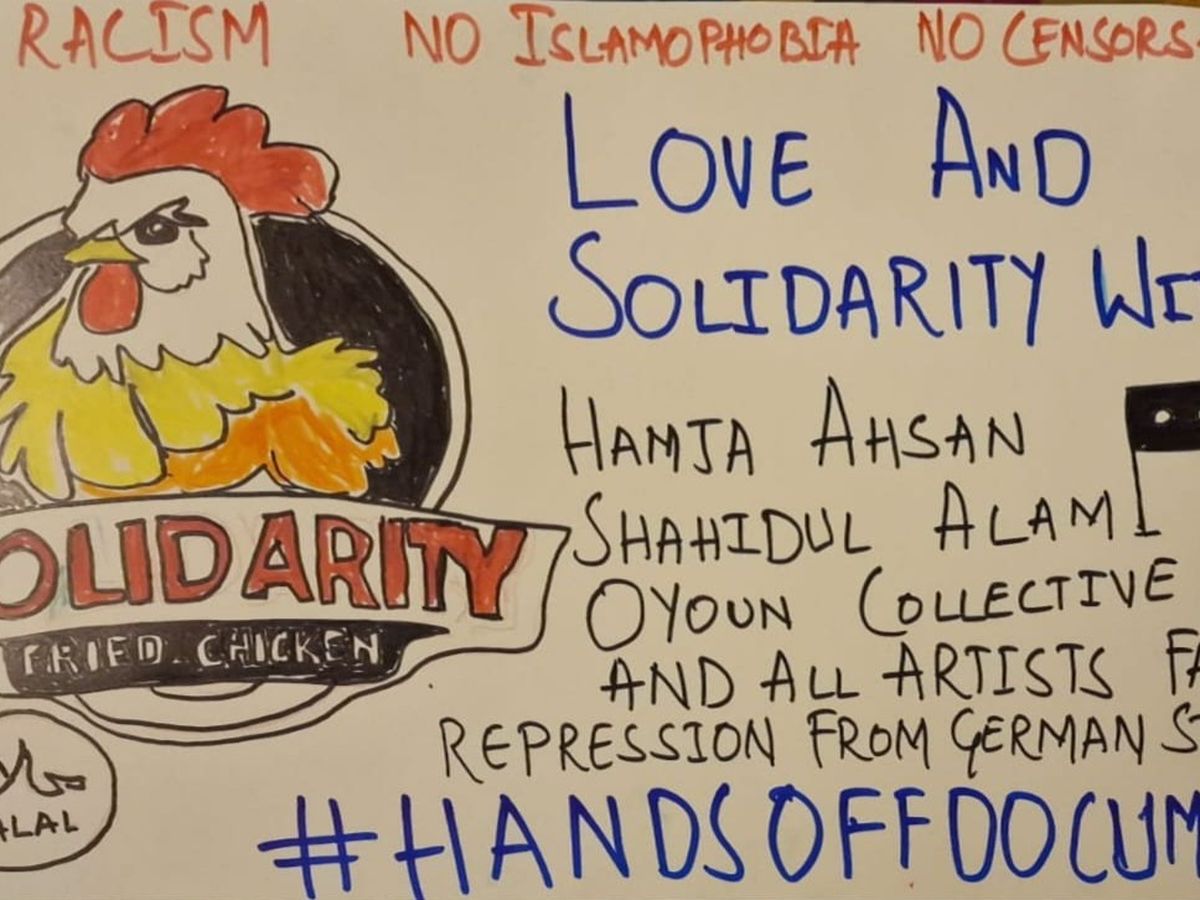 RACISM NO ISLAMOPHOBIA NO CENSORS
LOVE AND
SOLIDARITY WI
HAMJA AHSAN
SHAHIDUL ALAM
OYOUN COLLECTIVE
AND ALL ARTISTS FA
REPRESSION FROM GERMAN S
#HANDSOFFDOCUM
OLIDARITY
FRIED CHICKEN
ALAL